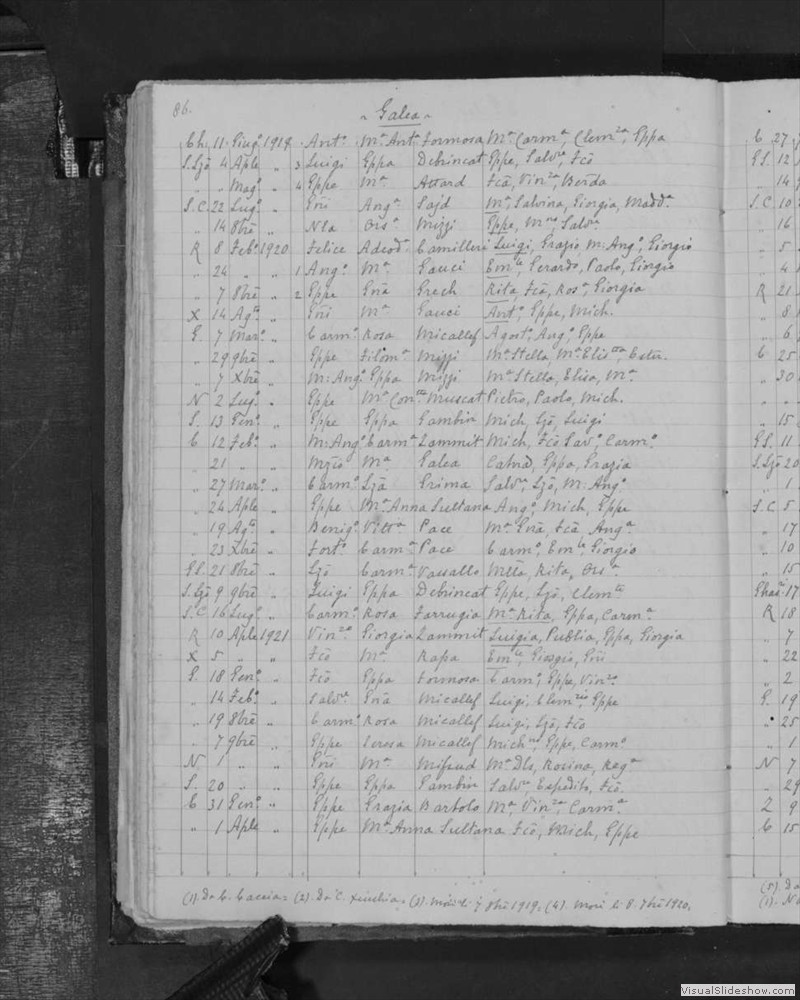 86.
Galea
Ch. 11 Giugo 1919 Anto Ma Ant. Formosa Ma Carma, Clemza, Eppa
S. Ljō 4 Aple " 3 Luigi Eppa Debrincat Eppe, Salvre, Fcō
" " Mago " 4 Eppe Ma Attard Fcā, Vinza, Berda
S.C. 22 Lugo " Gnī Anga Sajd Ma, Salvina, Giorgia, Madda
" 14 8brē " Nla Orsa Mizzi Eppe, Salvre
R 8 Febo 1920 Felice Adeoda Camilleri Luigi, Grazio M: Ango, Giorgio
" 24 " " 1 Ango Ma Gauci Emle, Gerardo, Paolo, Giorgio
" 7 8brē " 2 Eppe Gnā Grech Rita, Fcā, Rosa, Giorgia
X 14 Agto " Gnī Ma Gauci Anto, Eppe, Mich.
G. 7 Maro " Carmo Rosa Micallef Agost, Ango, Eppe
" 29 9brē " Eppe Filoma Mizzi Ma Stella, Ma Elistta, Ester.
" 7 Xbrē " M: Ango Eppa Mizzi Ma Stella, Elisa, Ma
N 2 Lugo " Eppe Ma Contta Muscat Pietro, Paolo, Mich.
S. 13 Geno " Eppe Eppa Gambin Mich, Ljō, Luigi
C 12 Febo " M: Ango Carma Zammit Mich, Fcō Savo, Carmo
" 21 " " Mzio Ma Galea Eppa, Grazia
" 27 Maro " Carmo Ljā Grima Salvre, Ljō, M: Ango
" 24 Aple " Eppe Ma Anna Sultana Ango, Mich, Eppe
" 19 Agto " Benigo Vitta Pace Ma Gnā, Fcā, Anga
" 23 Xbrē " Forto Carma Pace Carmo, Emle, Giorgio
GS. 21 8brē " Ljō Carma Vassallo Rita, Orsa
S. Ljō 9 9brē " Luigi Eppa Debrincat Eppe, Ljō, Clemte
S.C. 16 Lugo " Carmo Rosa Farrugia Ma Rita, Eppa, Carma
R 10 Aple 1921 Vinzo Giorgia Zammit Luigia, Publia, Eppa, Giorgia
X 5 " " Fcō Ma Rapa Emle, Giorgio, Gnī
G. 18 Geno " Fcō Eppa Formosa Carmo, Eppe, Vinzo
" 14 Febo " Salvre Gnā Micallef Luigi, Clemte, Eppe
" 19 8brē " Carmo Rosa Micallef Luigi, Ljō, Fcō
" 7 9brē " Eppe Teresa Micallef Eppe, Carmo
N 1 " " Gnī Ma Mifsud Ma Dls, Rosina, Rega
S. 20 " " Eppe Eppa Gambin Salvre, Espedito, Fcō
C 31 Geno " Eppe Grazia Bartolo Ma, Vinza, Carma
" 1 Aple " Eppe Ma Anna Sultana Fcō, Mich, Eppe
(1). Da C. Caccia = (2). Da C. Xeuchia = (3). morì li 7 8brē 1919. (4). Morì li 8. 7brē 1920.
C 27
GS. 12
" 14
S.C 10
" 16
" 5
" 4
R 21
" 8
" 6
C 25
" 30
" 15
GS. 11
S. Ljō 20
" 1
S.C 5
" 17
" 10
" 15
17
R 18
" 7
" 22
" 2
G. 19
" 25
" 1
N 7
" 29
Z 9
C 15
(5). Da
(1). N
VisualSlideshow.com